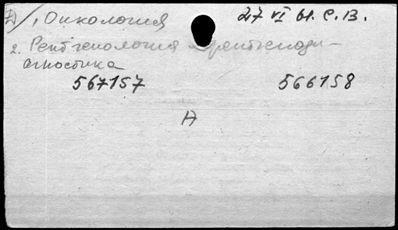 A) 1, Онкология 27 VI 61. С. В.
2. Рентгенология рентгеноди-
агностика
567157 566158
A